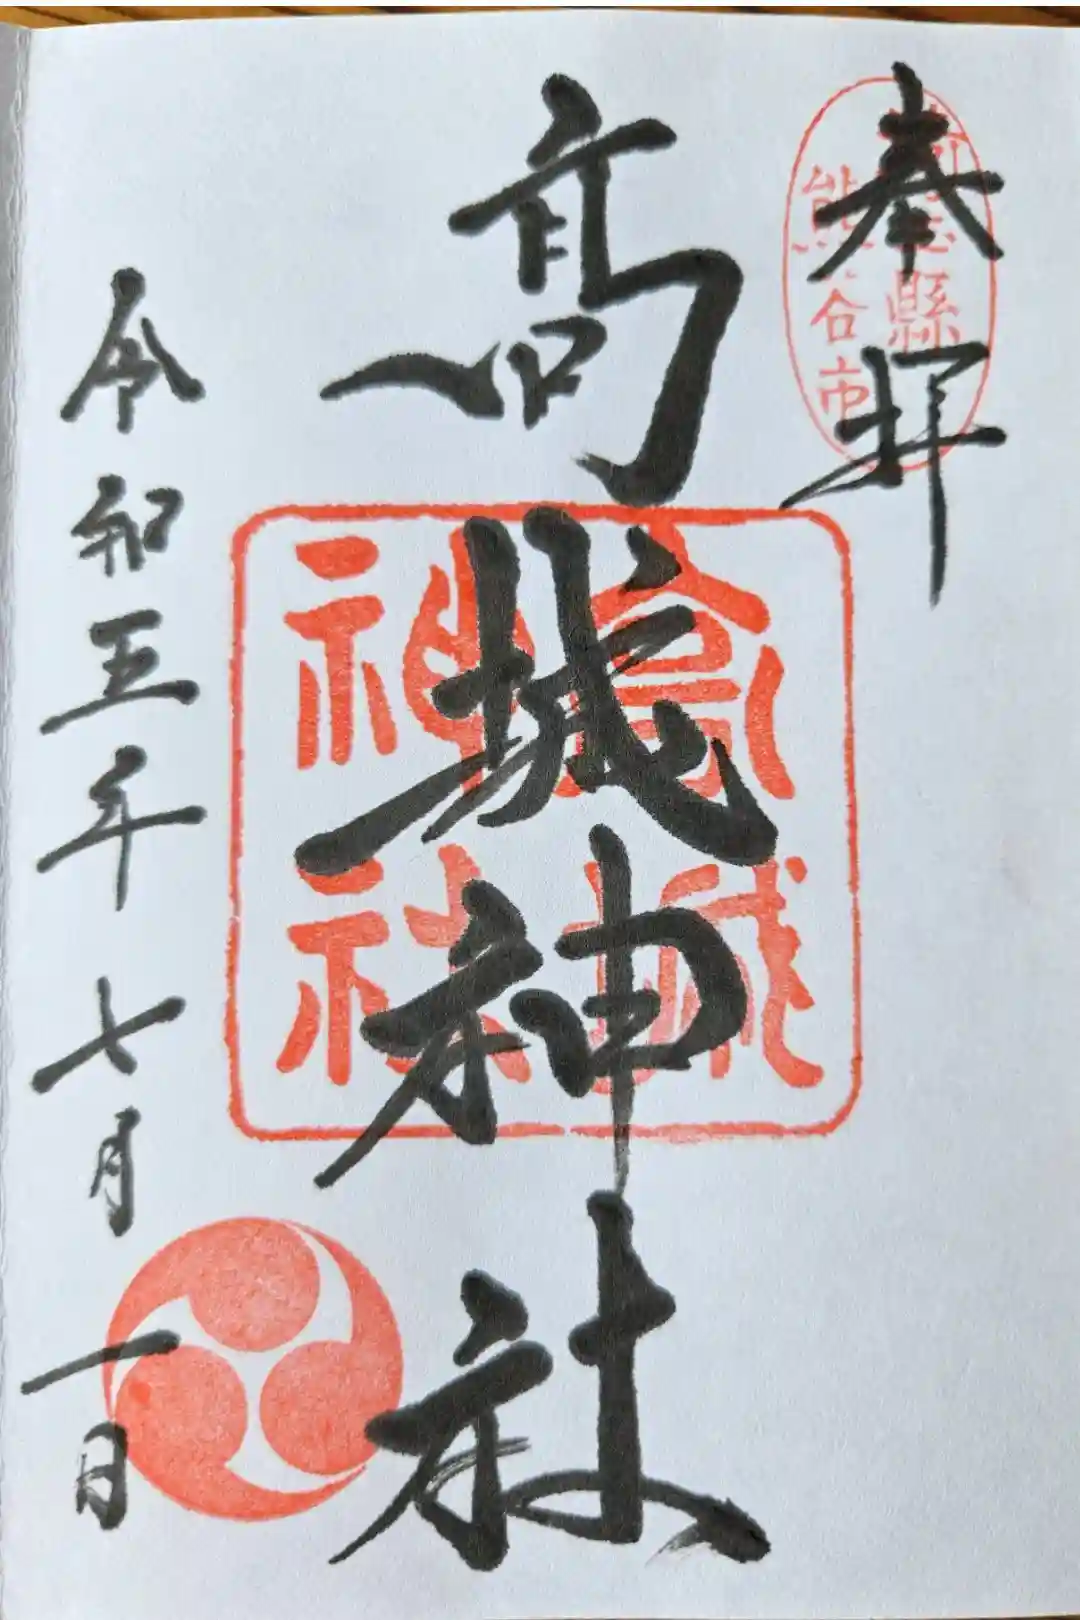 奉拝
熊谷市
高城神社
高城
神社
令和五年七月一日